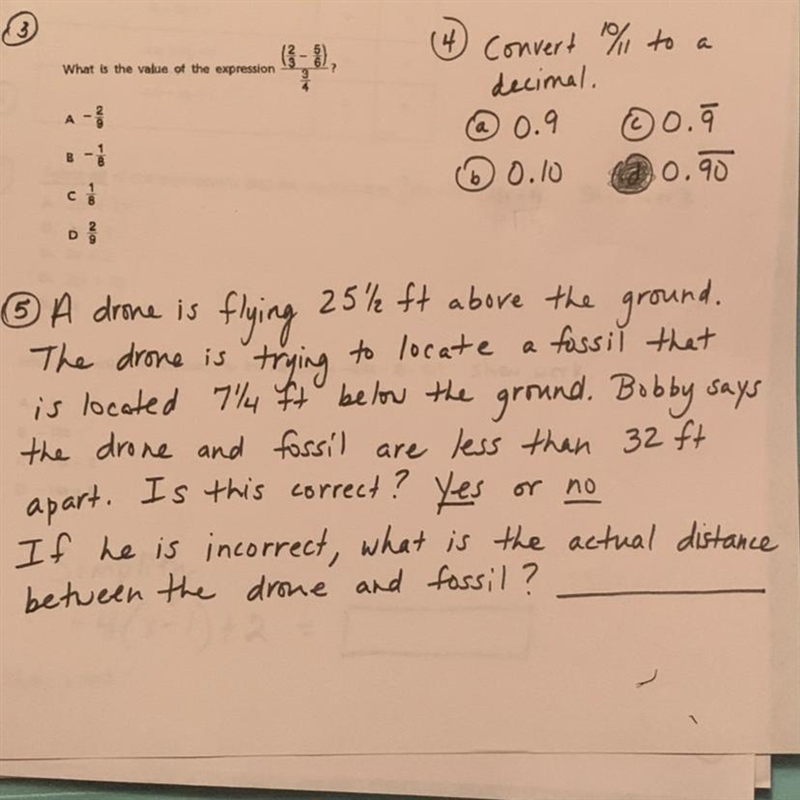 ③
What is the value of the expression (2/3 - 5/6) / 3/4 ?
A - 2/9
B - 1/8
C 1/8
D 2/9
④ Convert 10/11 to a
decimal.
ⓐ 0.9 ⓒ 0.9̅
ⓑ 0.10 ⓓ 0.9̅0̅
⑤ A drone is flying 25 1/2 ft above the ground.
The drone is trying to locate a fossil that
is located 7 1/4 ft below the ground. Bobby says
the drone and fossil are less than 32 ft
apart. Is this correct? Yes or no
If he is incorrect, what is the actual distance
between the drone and fossil?